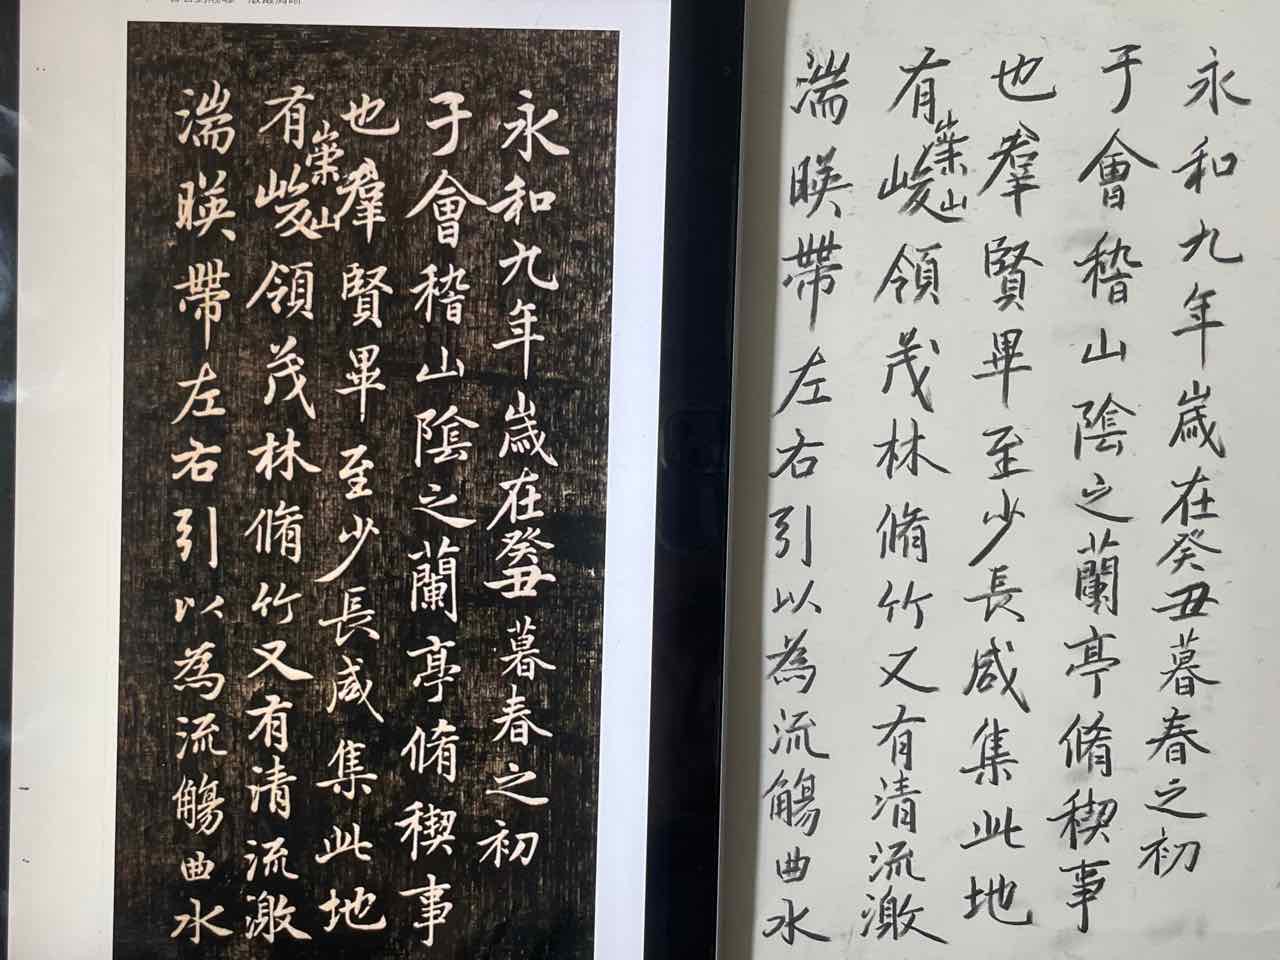 永和九年歲在癸丑暮春之初
于會稽山陰之蘭亭脩禊事
也羣賢畢至少長咸集此地
有崇山峻領茂林脩竹又有清流激
湍暎帶左右引以為流觴曲水
永和九年歲在癸丑暮春之初
于會稽山陰之蘭亭脩禊事
也羣賢畢至少長咸集此地
有崇山峻領茂林脩竹又有清流激
湍暎帶左右引以為流觴曲水